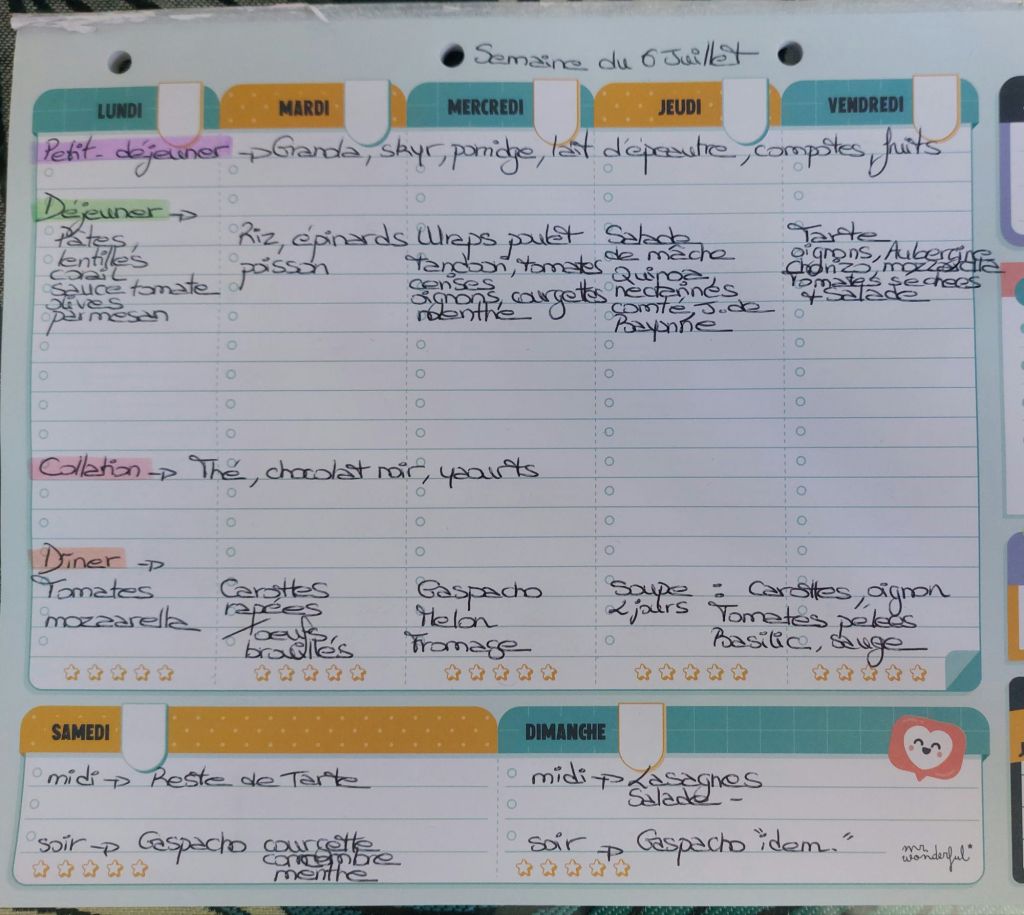 Semaine du 6 Juillet
LUNDI MARDI MERCREDI JEUDI VENDREDI
Petit-déjeuner → Granola, skyr, porridge, lait d'épeautre, compotes, fruits
Déjeuner →
Pâtes,
lentilles
corail
sauce tomate
olives
parmesan
Riz, épinards
poisson
Wraps poulet
tandoori, tomates
cerises
oignons, courgettes
menthe
Salade
de mâche
Quinoa,
nectarines
comté, J. de
Bayonne
Tarte
oignons, Aubergine
chorizo, mozzarella
Tomates séchées
+ Salade
Collation → Thé, chocolat noir, yaourts
Dîner →
Tomates
mozzarella
Carottes
rapées
+ oeufs
brouillés
Gaspacho
Melon
Fromage
Soupe : Carottes, oignon
2 jours Tomates pelées
Basilic, sauge
SAMEDI
midi → Reste de Tarte
soir → Gaspacho courgette
concombre
menthe
DIMANCHE
midi → Lasagnes
Salade -
soir → Gaspacho "idem."
mr.
wonderful*